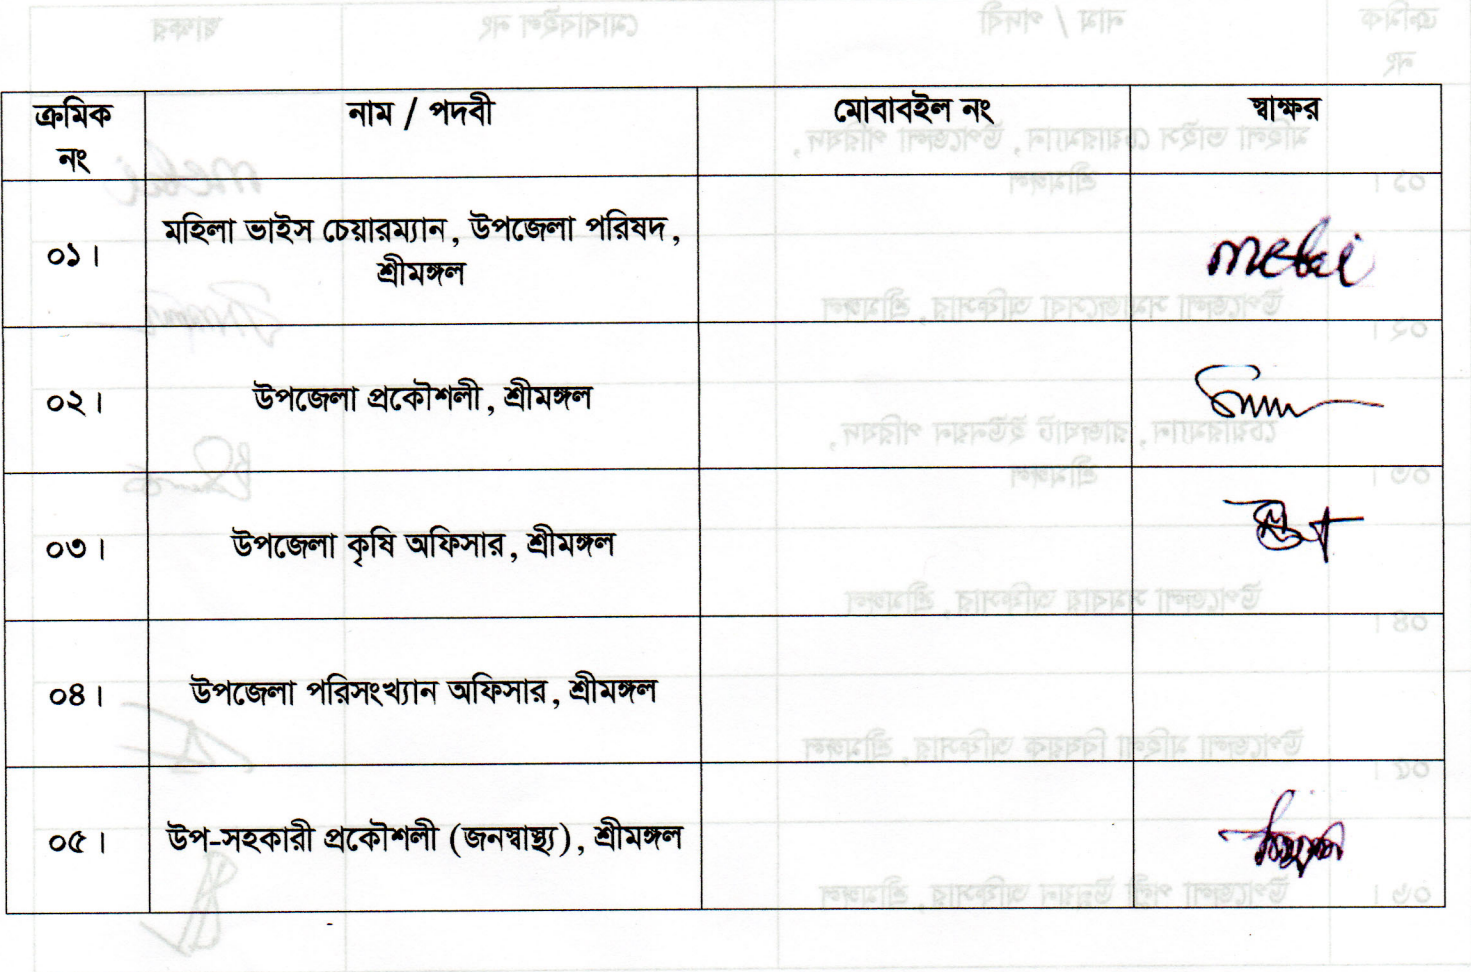 ক্রমিক
নং
নাম / পদবী
মোবাবইল নং
স্বাক্ষর
০১।
মহিলা ভাইস চেয়ারম্যান, উপজেলা পরিষদ,
শ্রীমঙ্গল
০২।
উপজেলা প্রকৌশলী, শ্রীমঙ্গল
০৩।
উপজেলা কৃষি অফিসার, শ্রীমঙ্গল
০৪।
উপজেলা পরিসংখ্যান অফিসার, শ্রীমঙ্গল
০৫।
উপ-সহকারী প্রকৌশলী (জনস্বাস্থ্য), শ্রীমঙ্গল